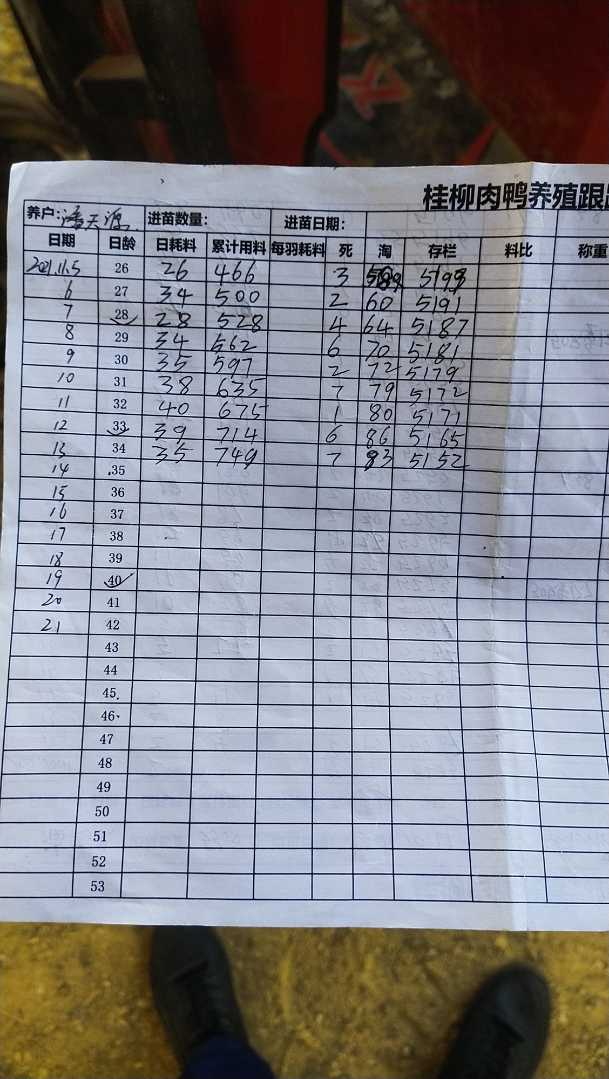 桂柳肉鸭养殖跟踪
养户: 潘天源 进苗数量: 进苗日期:
日期 日龄 日耗料 累计用料 每羽耗料 死 淘 存栏 料比 称重
2021.11.5 26 26 466 3 5193
6 27 34 500 2 60 5191
7 28 28 528 4 64 5187
8 29 34 562 6 70 5181
9 30 35 597 2 72 5179
10 31 38 635 7 79 5172
11 32 40 675 1 80 5171
12 33 39 714 6 86 5165
13 34 35 749 7 93 5152
14 35
15 36
16 37
17 38
18 39
19 40
20 41
21 42
43
44
45
46
47
48
49
50
51
52
53